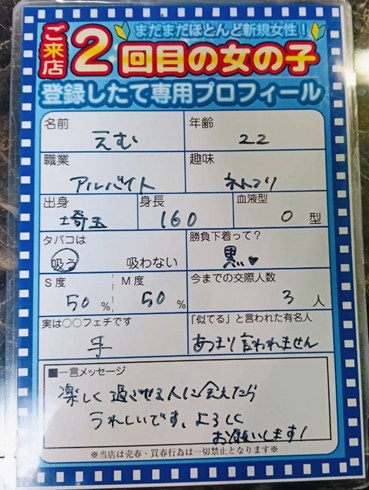 まだまだほとんど新規女性!
ご来店2回目の女の子
登録したて専用プロフィール
名前 えむ 年齢 22
職業 アルバイト 趣味
出身 埼玉 身長 160 血液型 O 型
タバコは 吸う 吸わない 勝負下着って? 黒♥
S度 50 % M度 50 % 今までの交際人数 3 人
実は○○フェチです 手 「似てる」と言われた有名人 あまり言われません
■一言メッセージ
楽しく過ごせる人に会えたら
うれしいです。よろしく
お願いします!
※当店は売春・買春行為は一切禁止となります※